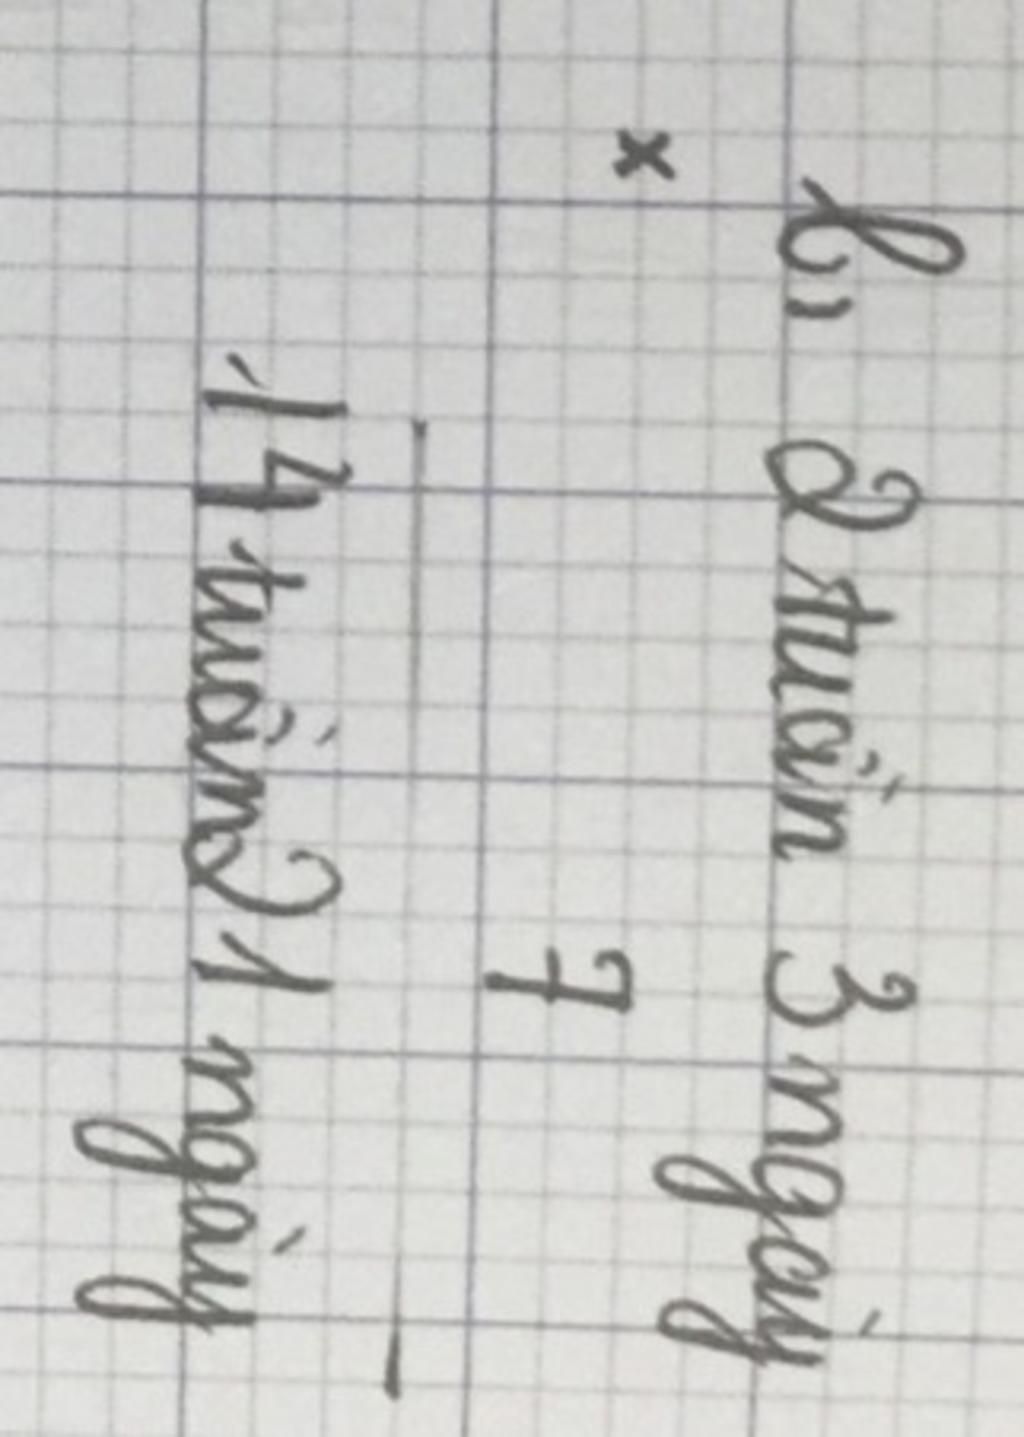 b, 2 tuần 3 ngày
×
7
14 tuần 21 ngày